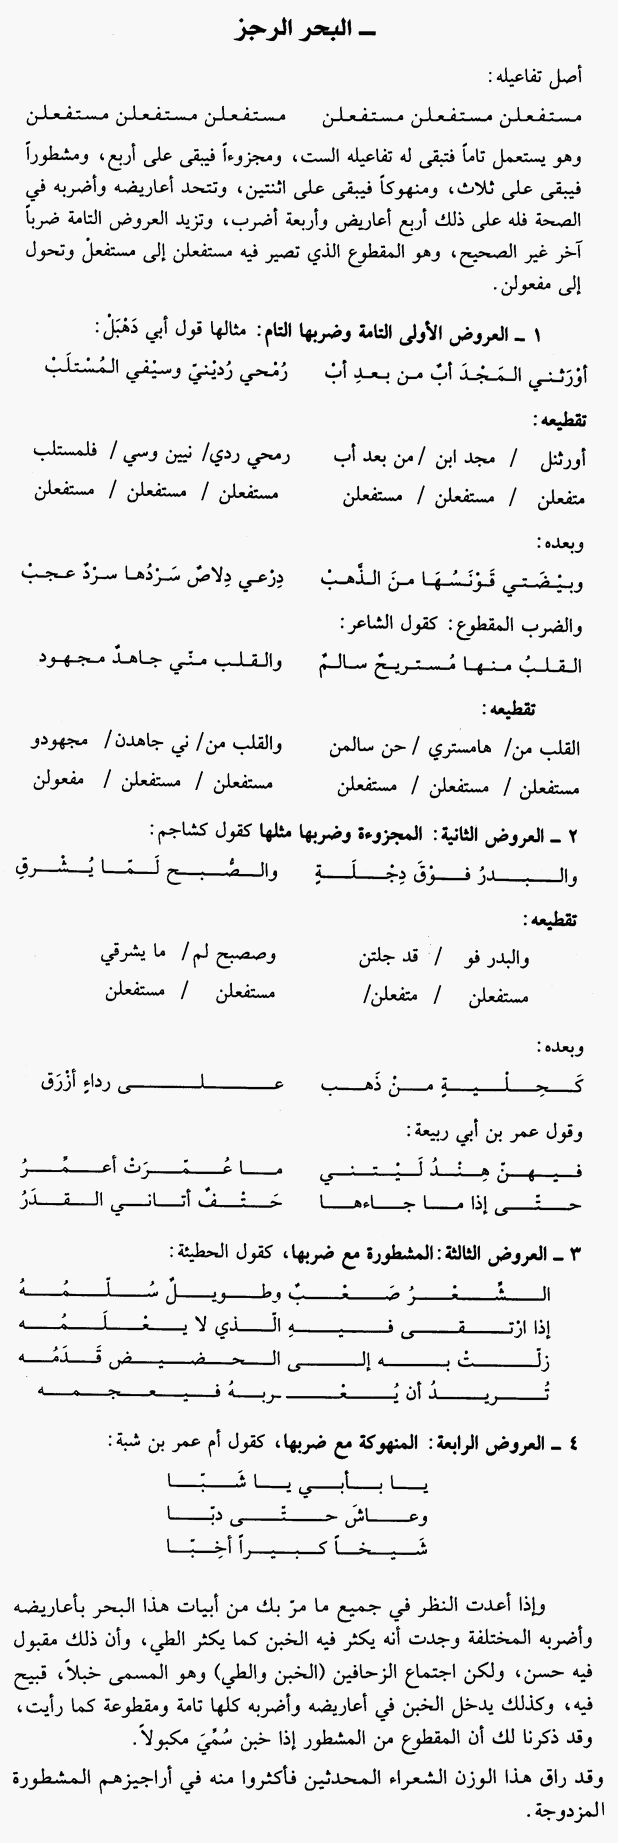 ـ البحر الرجز
أصل تفاعيله:
مستفعلن مستفعلن مستفعلن مستفعلن مستفعلن مستفعلن
وهو يستعمل تاماً فتبقى له تفاعيله الست، ومجزوءاً فيبقى على أربع، ومشطوراً
فيبقى على ثلاث، ومنهوكاً فيبقى على اثنتين، وتتحد أعاريضه وأضربه في
الصحة فله على ذلك أربع أعاريض وأربعة أضرب، وتزيد العروض التامة ضرباً
آخر غير الصحيح، وهو المقطوع الذي تصير فيه مستفعلن إلى مستفعلْ وتحول
إلى مفعولن.
١ ـ العروض الأولى التامة وضربها التام: مثالها قول أبي دَهْبَلْ:
أوْرَثـنـي المَـجْـدَ أبٌ مـن بـعـدِ أبْ رُمْـحي رُدَيْنيّ وسيْـفي المُسْتلَبْ
تقطيعه:
أورثنل / مجد ابن / من بعد أب رمحي ردي/ نيين وسي/ فلمستلب
متفعلن / مستفعلن / مستفعلن مستفعلن / مستفعلن / مستفعلن
وبعده:
وبـيْـضَـتـي قَـوْنَـسُـهَـا مـنَ الـذَّهـبْ دِرْعـي دِلاصٌ سَـرْدُهـا سـرْدٌ عـجـبْ
والضرب المقطوع: كقول الشاعر:
الـقـلـبُ مـنـهـا مُـسـتـريـحٌ سـالـمٌ والـقـلـب مـنّـي جـاهـدٌ مـجـهـود
تقطيعه:
القلب من/ هامستري / حن سالمن والقلب من/ ني جاهدن/ مجهودو
مستفعلن / مستفعلن / مستفعلن مستفعلن / مستفعلن / مفعولن
٢ ـ العروض الثانية: المجزوءة وضربها مثلها كقول كشاجم:
والـــبـــدرُ فــوْقَ دِجْــلَــةٍ والــصُّــبــح لَــمّــا يُــشْــرقِ
تقطيعه:
والبدر فو / قد جلتن وصصبح لم/ ما يشرقي
مستفعلن / متفعلن/ مستفعلن / مستفعلن
وبعده:
كَـــحِـــلْـــيـــةٍ مـــنْ ذَهـــب عـــلـــى رداءٍ أزْرَق
وقول عمر بن أبي ربيعة:
فـيـهـنّ هِـنْـدُ لَـيْـتـنـي مــا عُــمّــرَتْ أعــمِّــرُ
حـتّـى إذا مـا جـاءهـا حَـتْـفٌ أتـانـي الـقـدَرُ
٣ ـ العروض الثالثة: المشطورة مع ضربها، كقول الحطيئة:
الـــشِّـــعْـــرُ صَـــعْـــبٌ وطـــويـــلٌ سُـــلّـــمُـــهُ
إذا ارْتـــقـــى فـــيـــهِ الّـــذي لا يـــعْـــلَـــمُـــه
زلّـــتْ بـــه إلـــى الـــحـــضـــيـــض قَـــدَمُـــه
تُـــريـــدُ أن يُـــعْـــربـهُ فـــيـــعـــجـــمـــه
٤ ـ العروض الرابعة: المنهوكة مع ضربها، كقول أم عمر بن شبة:
يـــا بـــأبـــي يـــا شَـــبّـــا
وعـــاشَ حـــتّـــى دبّـــا
شَـــيـــخـــاً كـــبـــيـــراً أخِـــبّـــا
وإذا أعدت النظر في جميع ما مرّ بك من أبيات هذا البحر بأعاريضه
وأضربه المختلفة وجدت أنه يكثر فيه الخبن كما يكثر الطي، وأن ذلك مقبول
فيه حسن، ولكن اجتماع الزحافين (الخبن والطي) وهو المسمى خبلاً، قبيح
فيه، وكذلك يدخل الخبن في أعاريضه وأضربه كلها تامة ومقطوعة كما رأيت،
وقد ذكرنا لك أن المقطوع من المشطور إذا خبن سُمِّيَ مكبولاً.
وقد راق هذا الوزن الشعراء المحدثين فأكثروا منه في أراجيزهم المشطورة
المزدوجة.